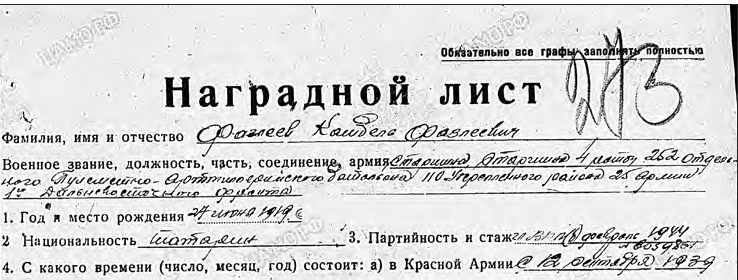 Обязательно все графы заполнять полностью
243
Наградной лист
Фамилия, имя и отчество Фазлеев Фазлеевич
Военное звание, должность, часть, соединение, армия старшина, старшина 4 роты 262 отдель-
ного Пулеметно-Артиллерийского батальона 110 Укрепленного района 25 армии
1го Дальневосточного фронта
1. Год и место рождения 27 июня 1919 г
2 Национальность татарин 3. Партийность и стаж февраль 1944
4. С какого времени (число, месяц, год) состоит: а) в Красной Армии с 12 сентября 1939